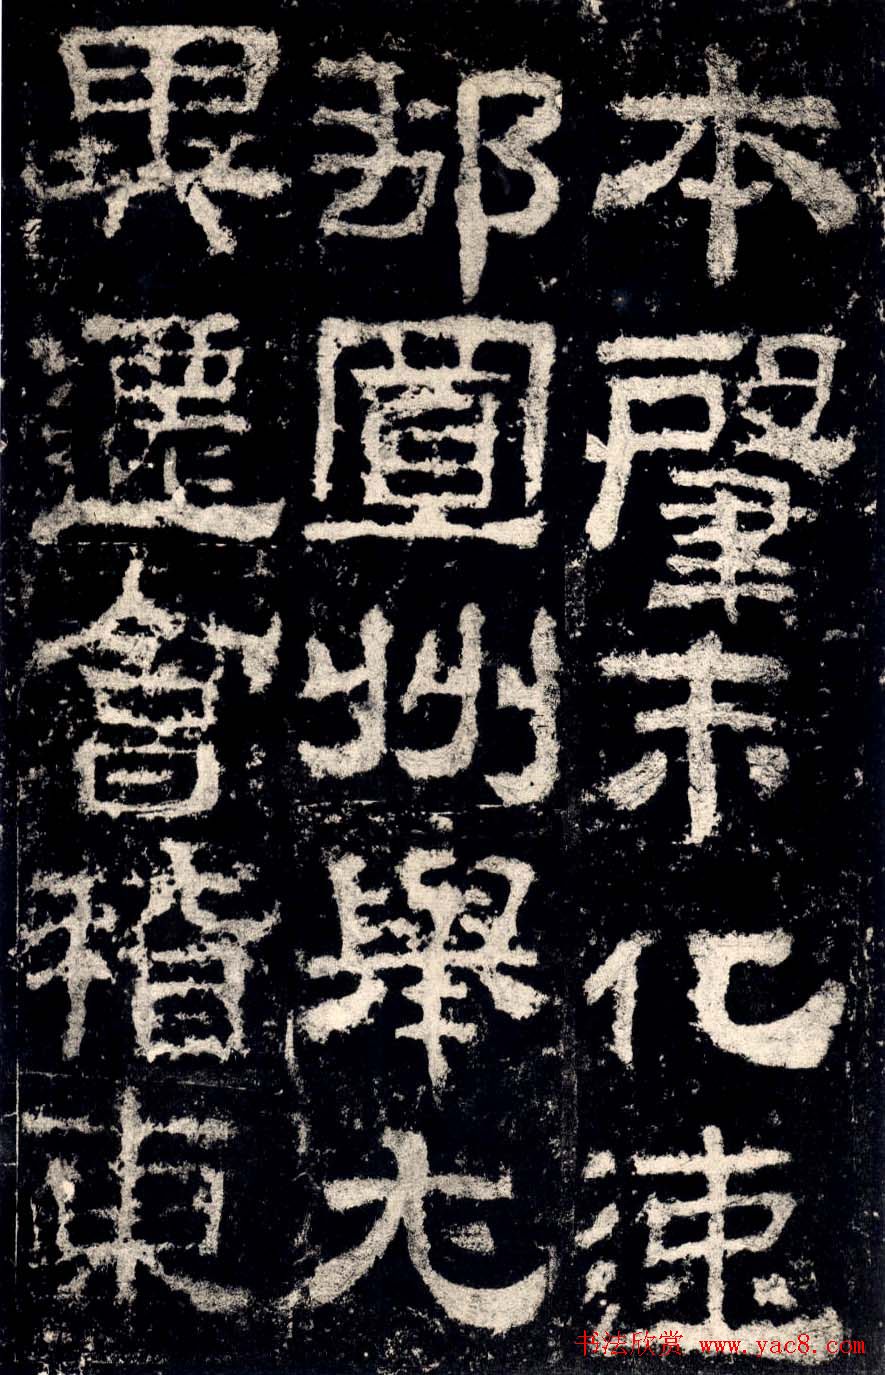 本肇末化速
郵置州舉尤
異遷會稽東
书法欣赏 www.yac8.com